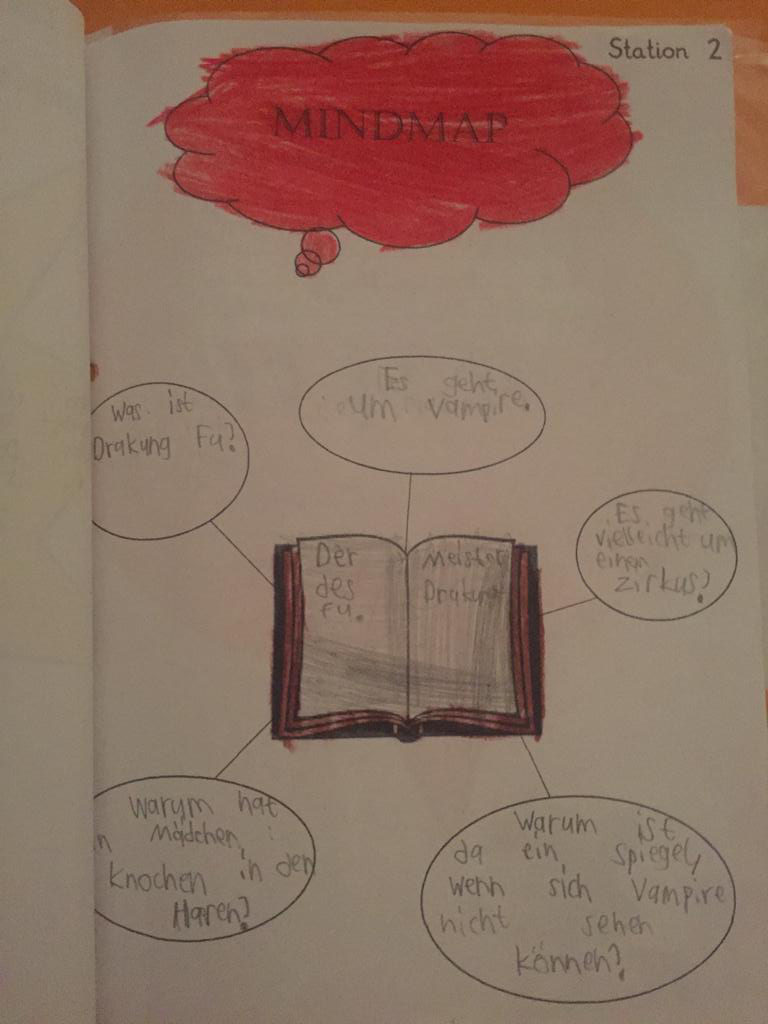 Station 2
MINDMAP
Es geht
um vampire.
Was ist
Drakung Fu?
Es geht
vielleicht um
einen
zirkus?
Der Meister
des Drakung
Fu.
Warum hat
n Mädchen
knochen in den
Haren?
Warum ist
da ein spiegel,
wenn sich Vampire
nicht sehen
können?